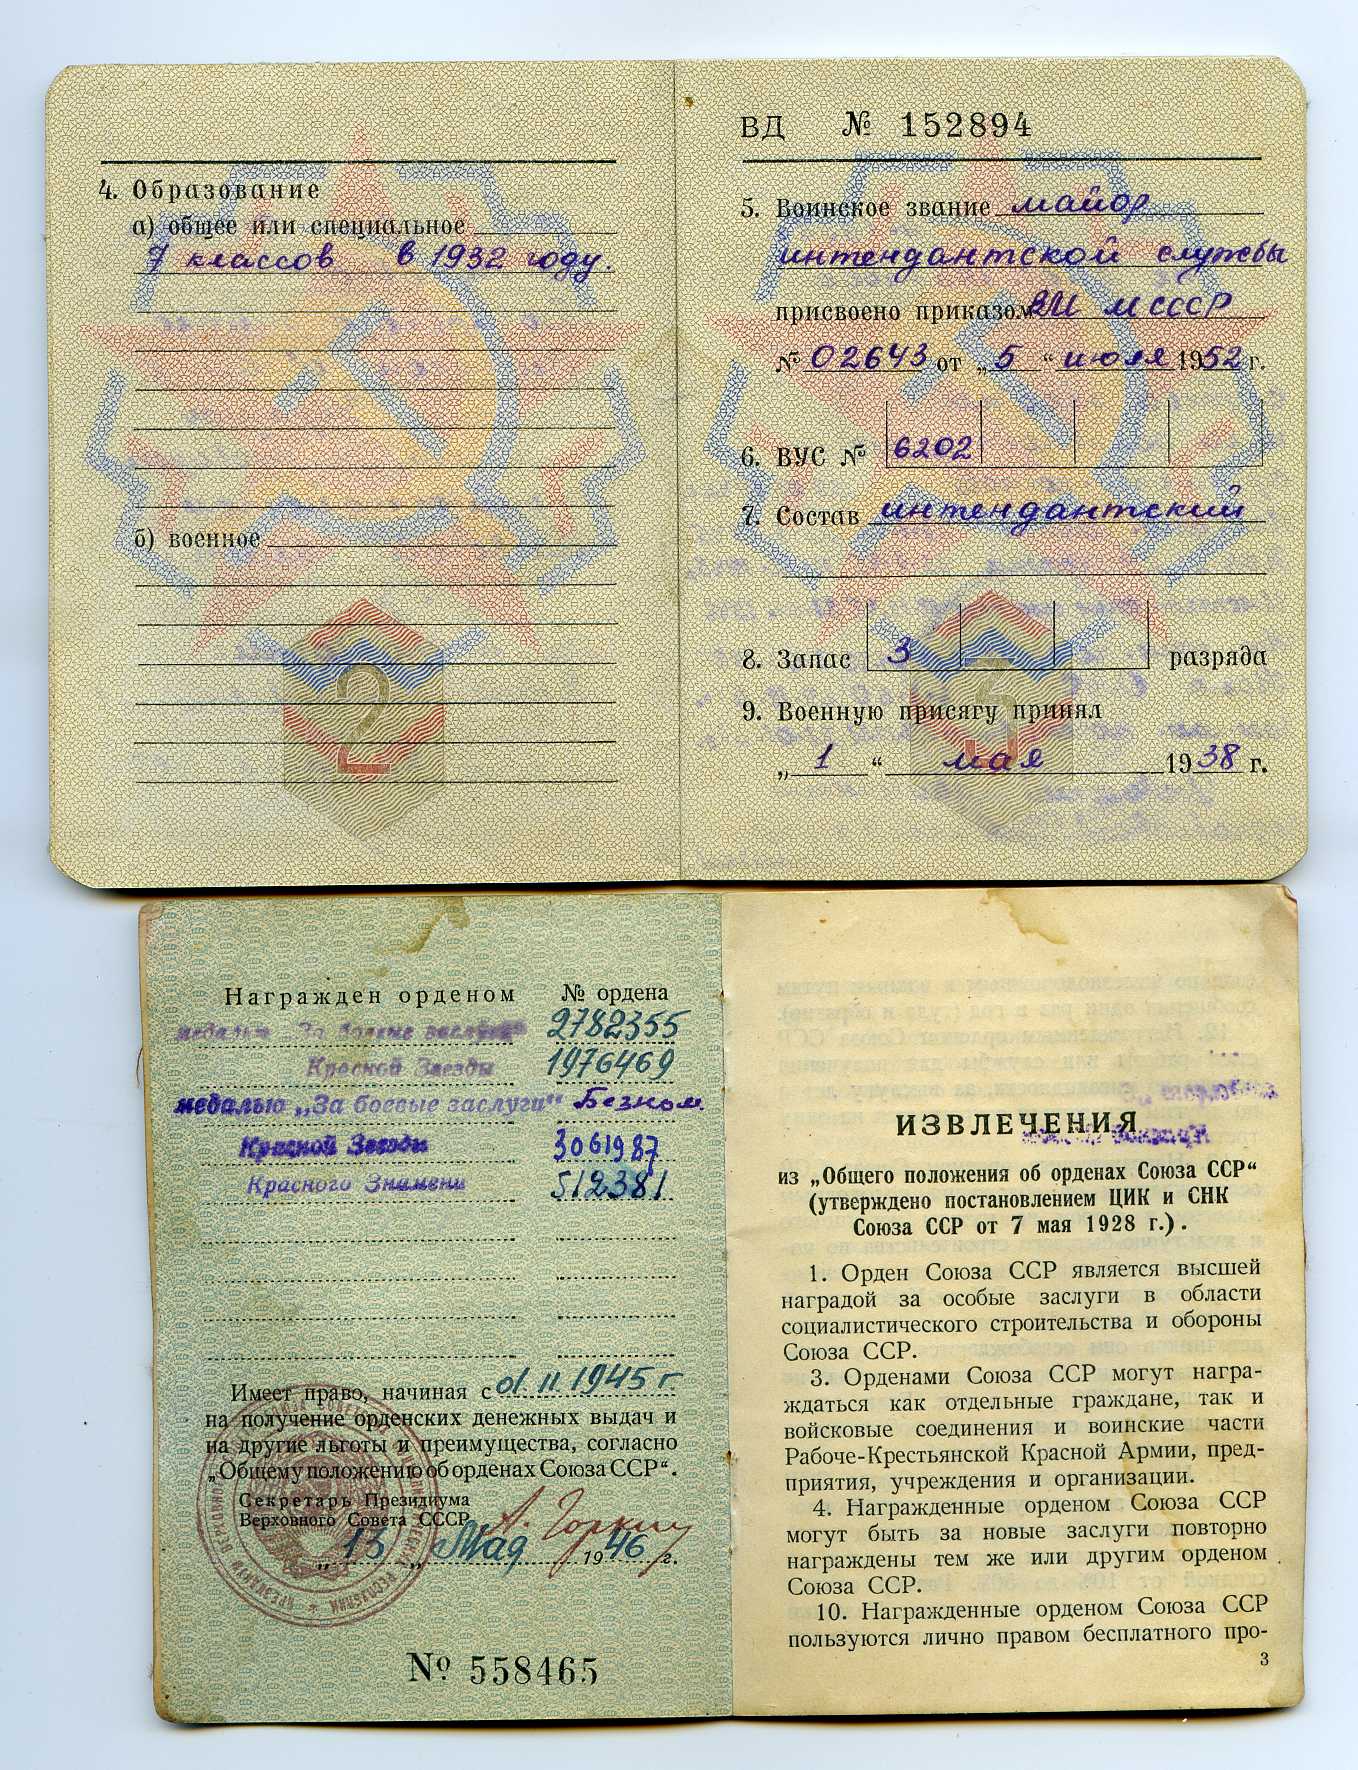 4. Образование
а) общее или специальное
7 классов в 1932 году.
б) военное
2
ВД № 152894
5. Воинское звание майор
интендантской службы
присвоено приказом ВМ МСССР
№ 02643 от „5“ июля 1952 г.
6. ВУС № 6202
7. Состав интендантский
8. Запас 3 разряда
9. Военную присягу принял
„1“ мая 1938 г.
3
Награжден орденом № ордена
медалью „За боевые заслуги“ 2782355
Красной Звезды 1976469
медалью „За боевые заслуги“ Безном.
Красной Звезды 3061987
Красного Знамени 512381
Имеет право, начиная с 01.11.1945 г
на получение орденских денежных выдач и
на другие льготы и преимущества, согласно
„Общему положению об орденах Союза ССР“.
Секретарь Президиума
Верховного Совета СССР А. Горкин
„13„ Мая 1946 г.
№ 558465
ИЗВЛЕЧЕНИЯ
из „Общего положения об орденах Союза ССР“
(утверждено постановлением ЦИК и СНК
Союза ССР от 7 мая 1928 г.).
1. Орден Союза ССР является высшей
наградой за особые заслуги в области
социалистического строительства и обороны
Союза ССР.
3. Орденами Союза ССР могут награ-
ждаться как отдельные граждане, так и
войсковые соединения и воинские части
Рабоче-Крестьянской Красной Армии, пред-
приятия, учреждения и организации.
4. Награжденные орденом Союза ССР
могут быть за новые заслуги повторно
награждены тем же или другим орденом
Союза ССР.
10. Награжденные орденом Союза ССР
пользуются лично правом бесплатного про-
3